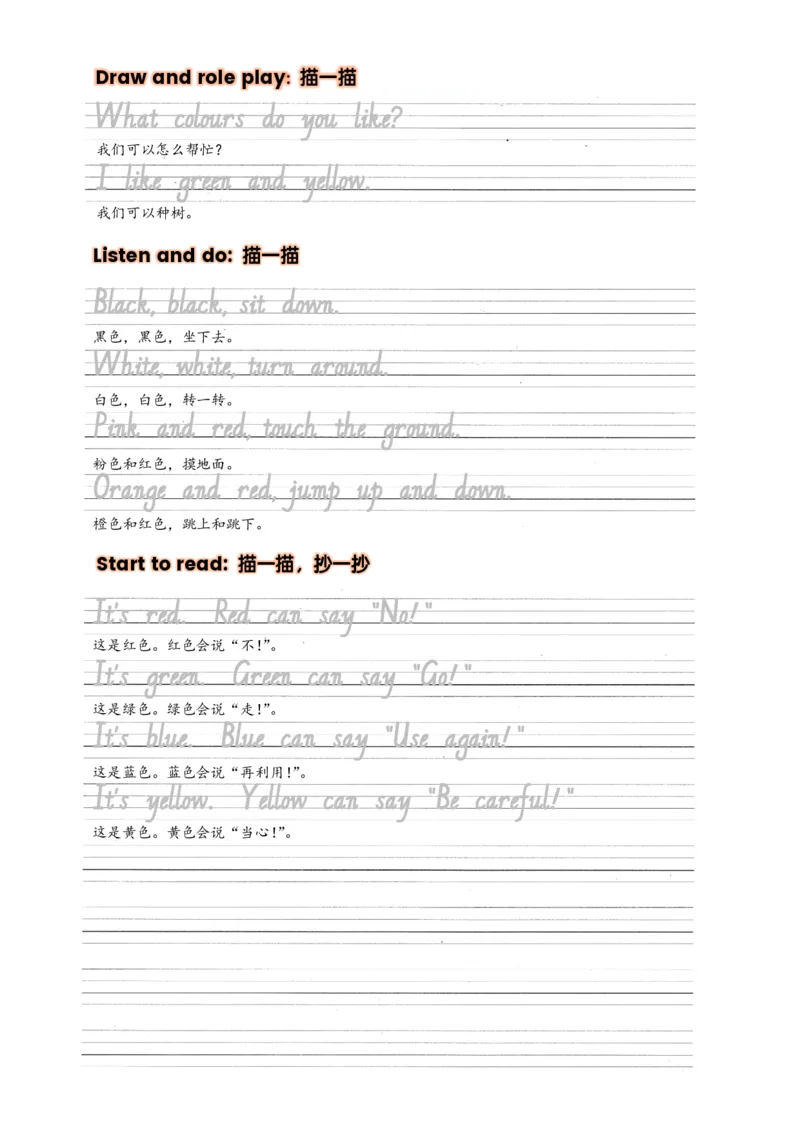 Draw and role play: 描一描
What colours do you like?
我们可以怎么帮忙？
I like green and yellow.
我们可以种树。
Listen and do: 描一描
Black, black, sit down.
黑色，黑色，坐下去。
White, white, turn around.
白色，白色，转一转。
Pink and red, touch the ground.
粉色和红色，摸地面。
Orange and red, jump up and down.
橙色和红色，跳上和跳下。
Start to read: 描一描，抄一抄
It's red. Red can say "No!"
这是红色。红色会说“不！”。
It's green. Green can say "Go!"
这是绿色。绿色会说“走！”。
It's blue. Blue can say "Use again!"
这是蓝色。蓝色会说“再利用！”。
It's yellow. Yellow can say "Be careful!"
这是黄色。黄色会说“当心！”。